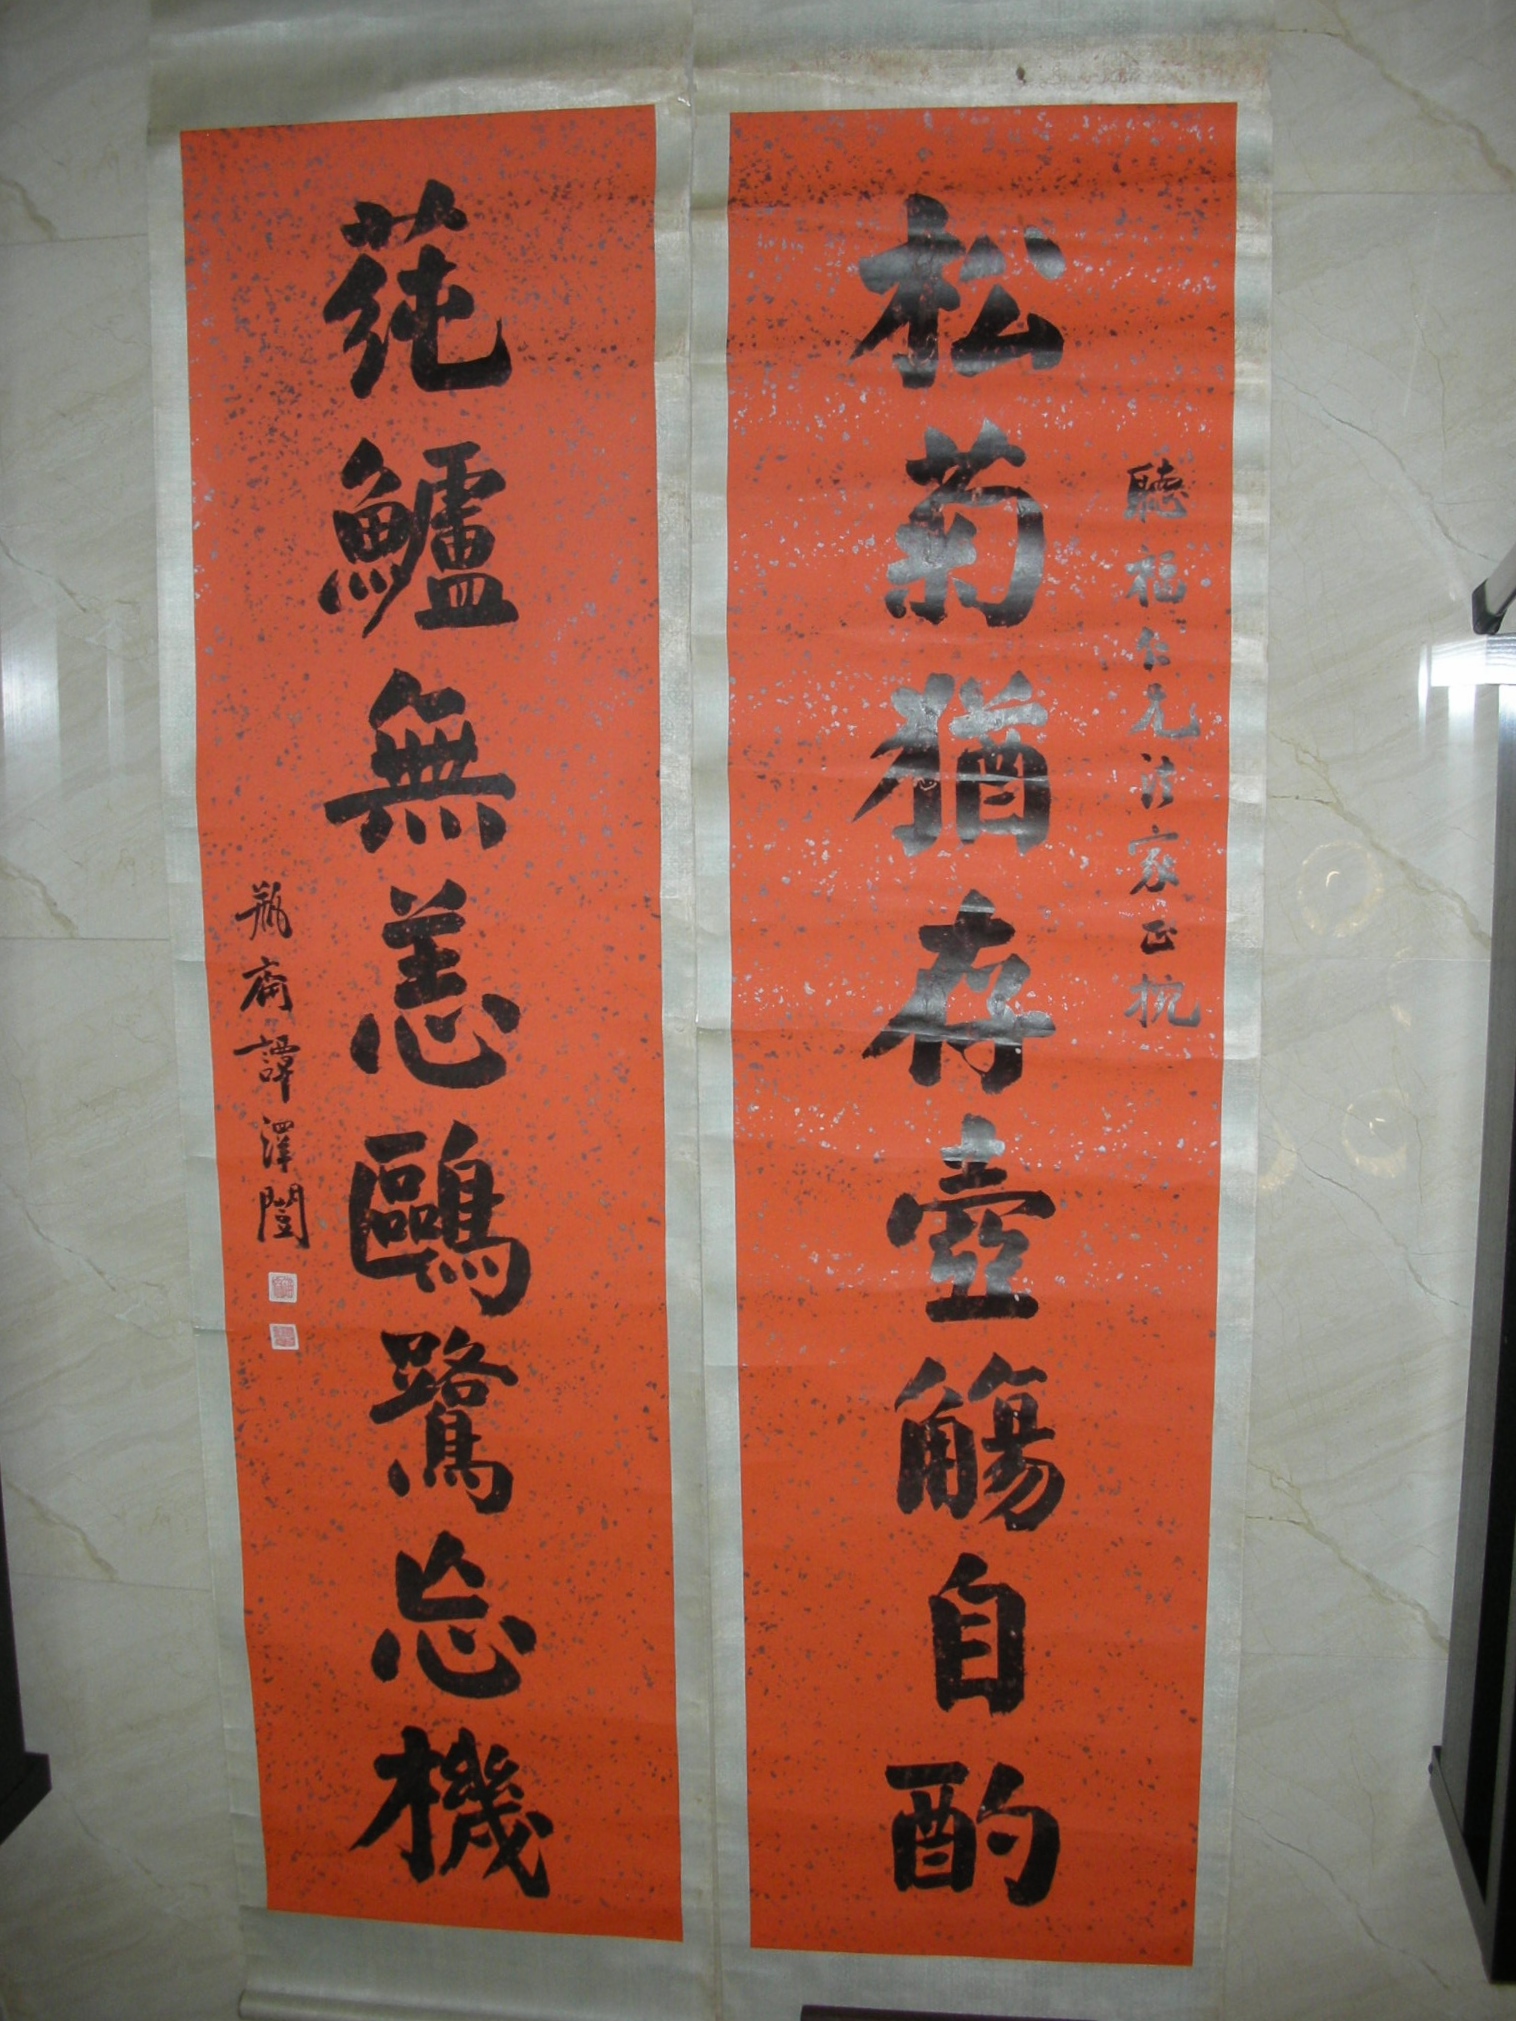 聽福仁兄法家正抗
松菊猶存壺觴自酌
蒓鱸無恙鷗鷺忘機
瓶齋譚澤闓